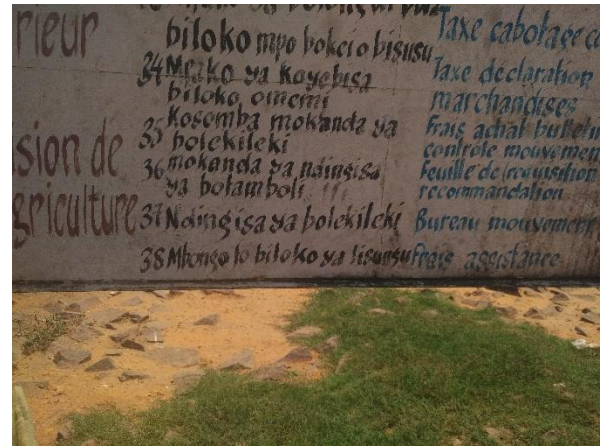 rieur
sion de
griculture
biloko mpo boketo bisusu
34 Mpako ya koyebisa
biloko omemi
35 Kosomba mokanda ya
bolekileki
36 mokanda ya ndingisa
ya botamboli
37 Ndingisa ya bolekileki
38 Mbongo to biloko ya lisungu
Taxe cabotage
Taxe declaration
marchandises
Frais achat bulletin
controle mouvemen
Feuille de requisition
recommandation
Bureau mouvement
Frais assistance